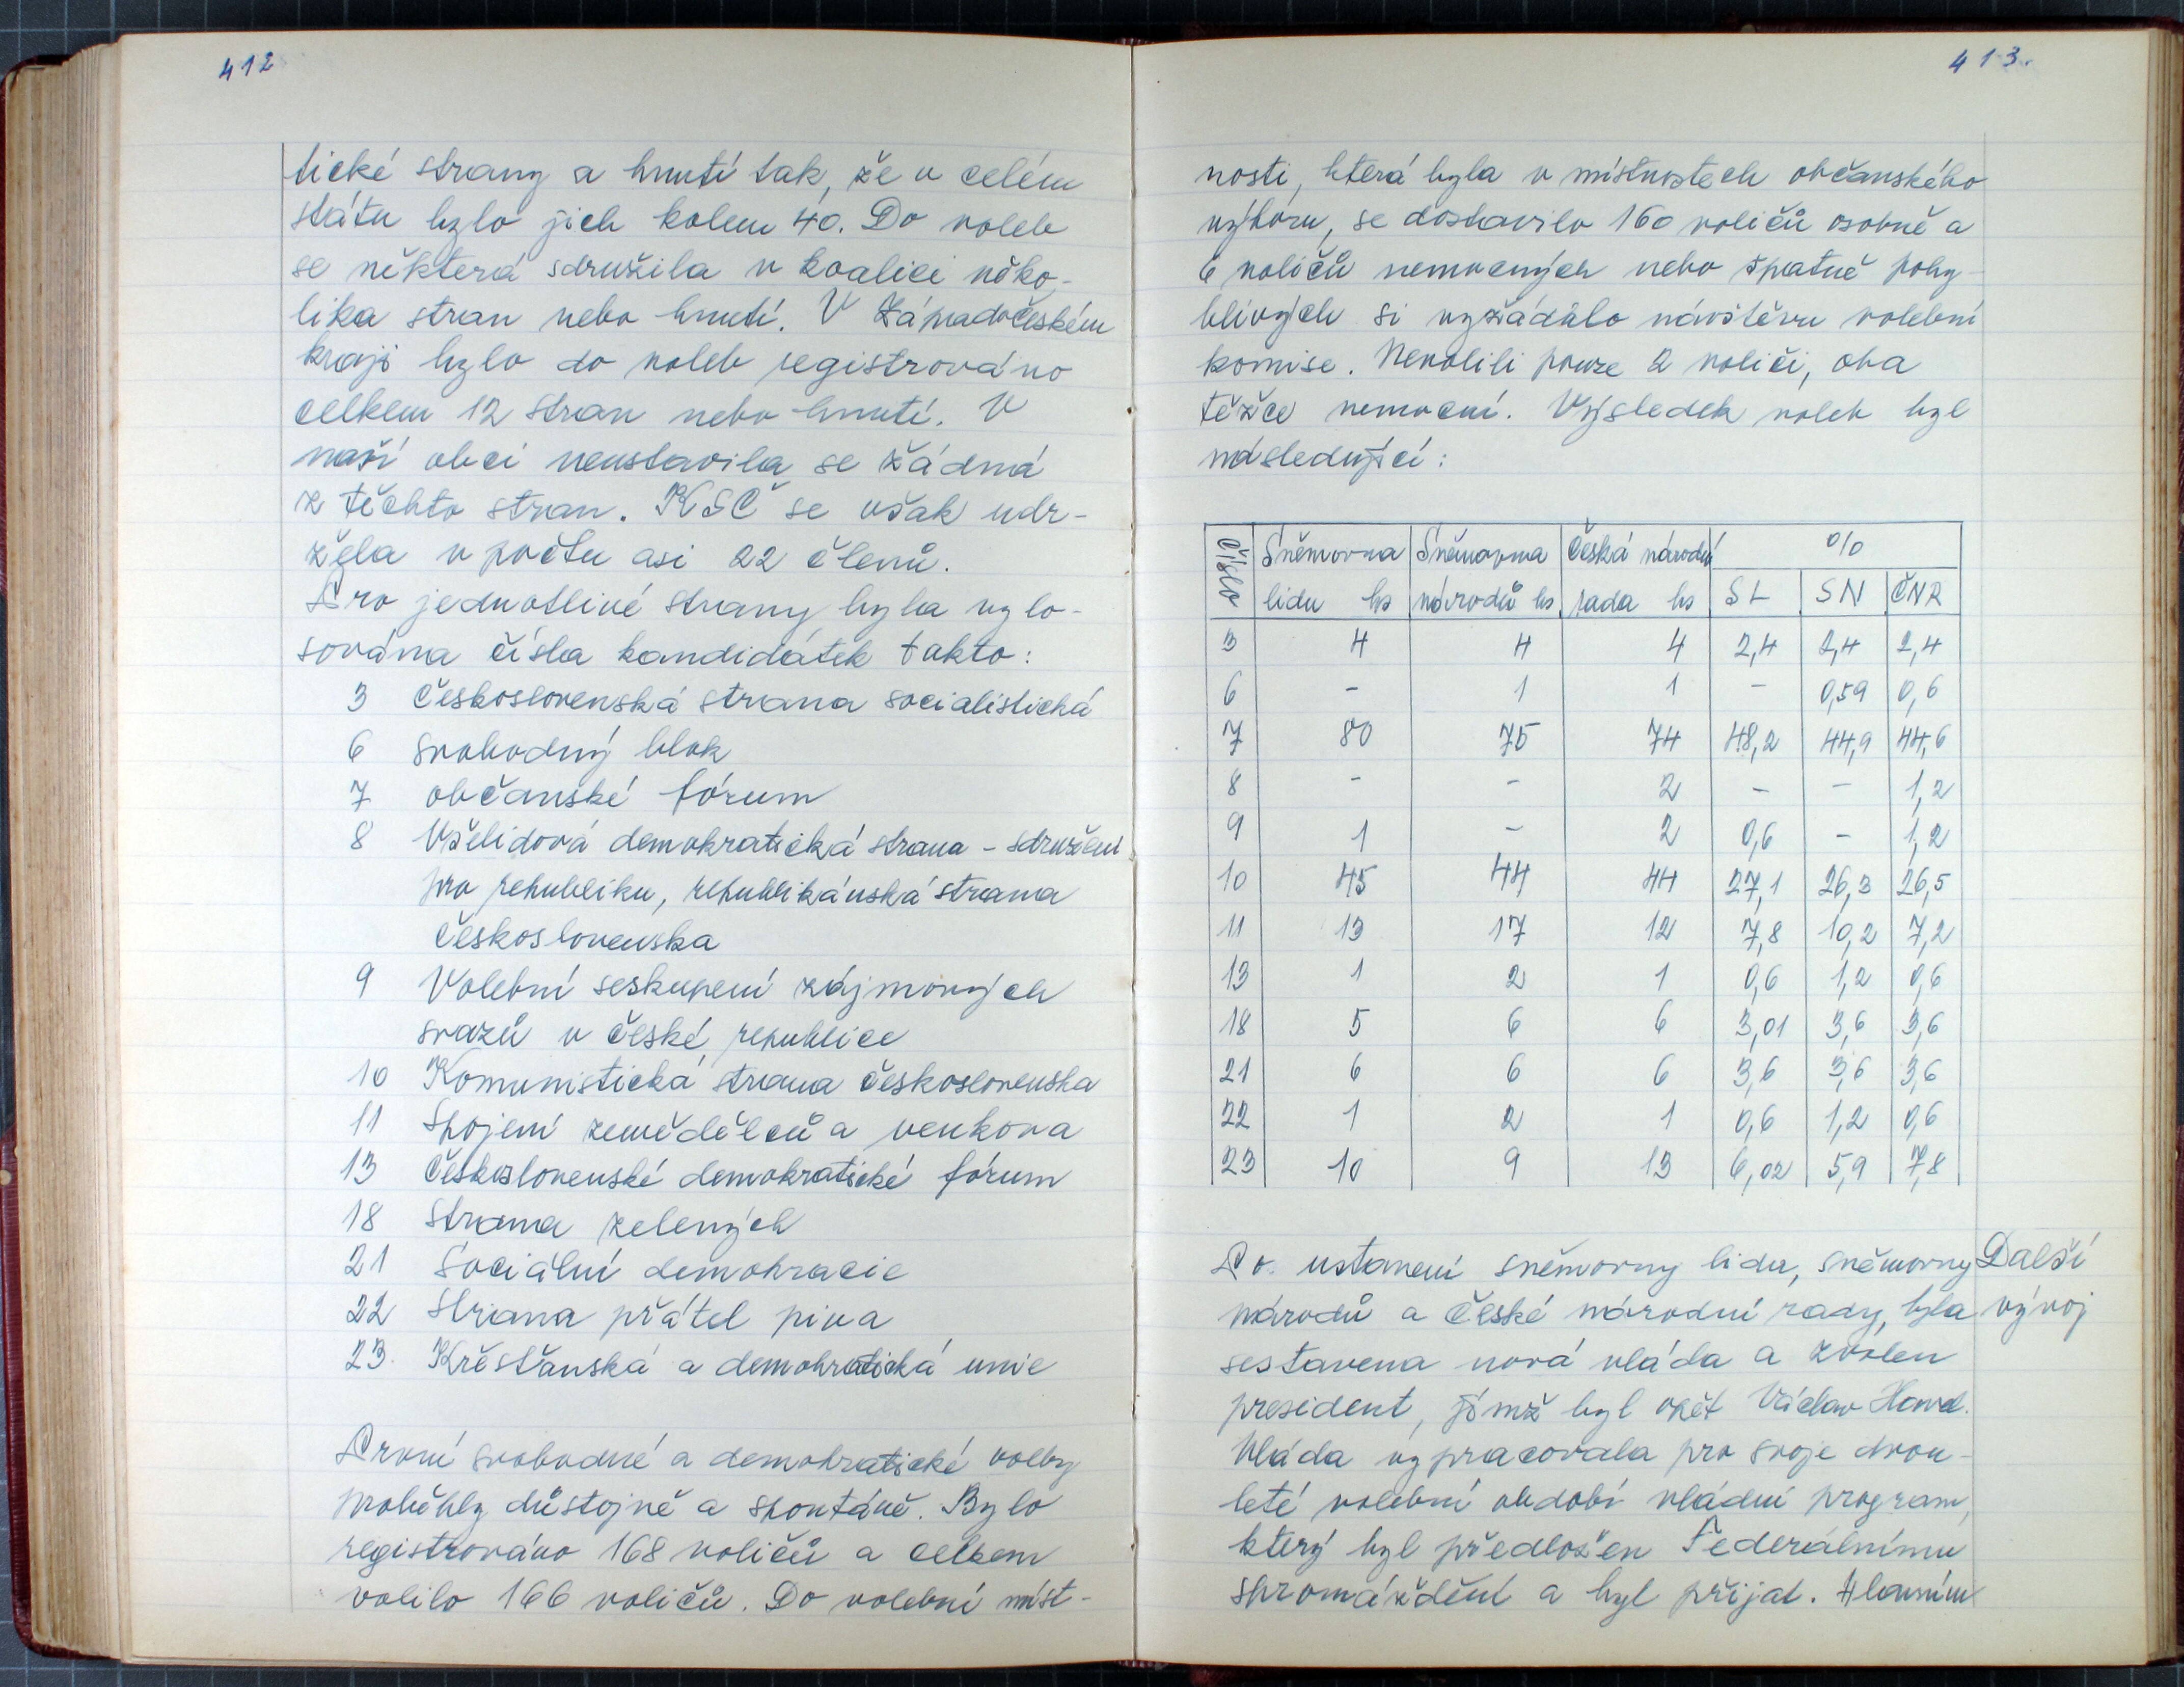 412
tické strany a hnutí tak, že v celém
státu bylo jich kolem 40. Do voleb
se některá sdružila v koalici něko-
lika stran nebo hnutí. V Západočeském
kraji bylo do voleb registrováno
celkem 12 stran nebo hnutí. V
naší obci neustavila se žádná
z těchto stran. KSČ se však udr-
žela v počtu asi 22 členů.
Pro jednotlivé strany byla vylo-
sována čísla kandidátek takto:
3 Československá strana socialistická
6 svobodný blok
7 občanské fórum
8 Všelidová demokratická strana - sdružení
pro republiku, republikánská strana
Československa
9 Volební seskupení zájmových
svazů v České republice
10 Komunistická strana Československa
11 Spojení zemědělců a venkova
13 Československé demokratické fórum
18 Strana zelených
21 Sociální demokracie
22 Strana přátel piva
23. Křesťanská a demokratická unie
První svobodné a demokratické volby
proběhly důstojně a spontáně. Bylo
registrováno 168 voličů a celkem
volilo 166 voličů. Do volební míst-
413.
nosti, která byla v místnostech občanského
výboru, se dostavilo 160 voličů osobně a
6 voličů nemocných nebo špatně pohy-
blivých si vyžádalo návštěvu volební
komise. Nevolili pouze 2 voliči, oba
těžce nemocní. Výsledek voleb byl
následující:
Číslo Sněmovna lidu hs Sněmovna národů hs Česká národní rada hs %
SL SN ČNR
3 4 4 4 2,4 2,4 2,4
6 - 1 1 - 0,59 0,6
7 80 75 74 48,2 44,9 44,6
8 - - 2 - - 1,2
9 1 - 2 0,6 - 1,2
10 45 44 44 27,1 26,3 26,5
11 13 17 12 7,8 10,2 7,2
13 1 2 1 0,6 1,2 0,6
18 5 6 6 3,01 3,6 3,6
21 6 6 6 3,6 3,6 3,6
22 1 2 1 0,6 1,2 0,6
23 10 9 13 6,02 5,9 7,8
Po ustanení sněmovny lidu, sněmovny
národů a České národní rady, byla
sestavena nová vláda a zvolen
president, jímž byl opět Václav Havel.
Vláda vypracovala pro svoje dvou-
leté volební období vládní program,
který byl předložen Federálnímu
shromáždění a byl přijat. Hlavním
Další
vývoj